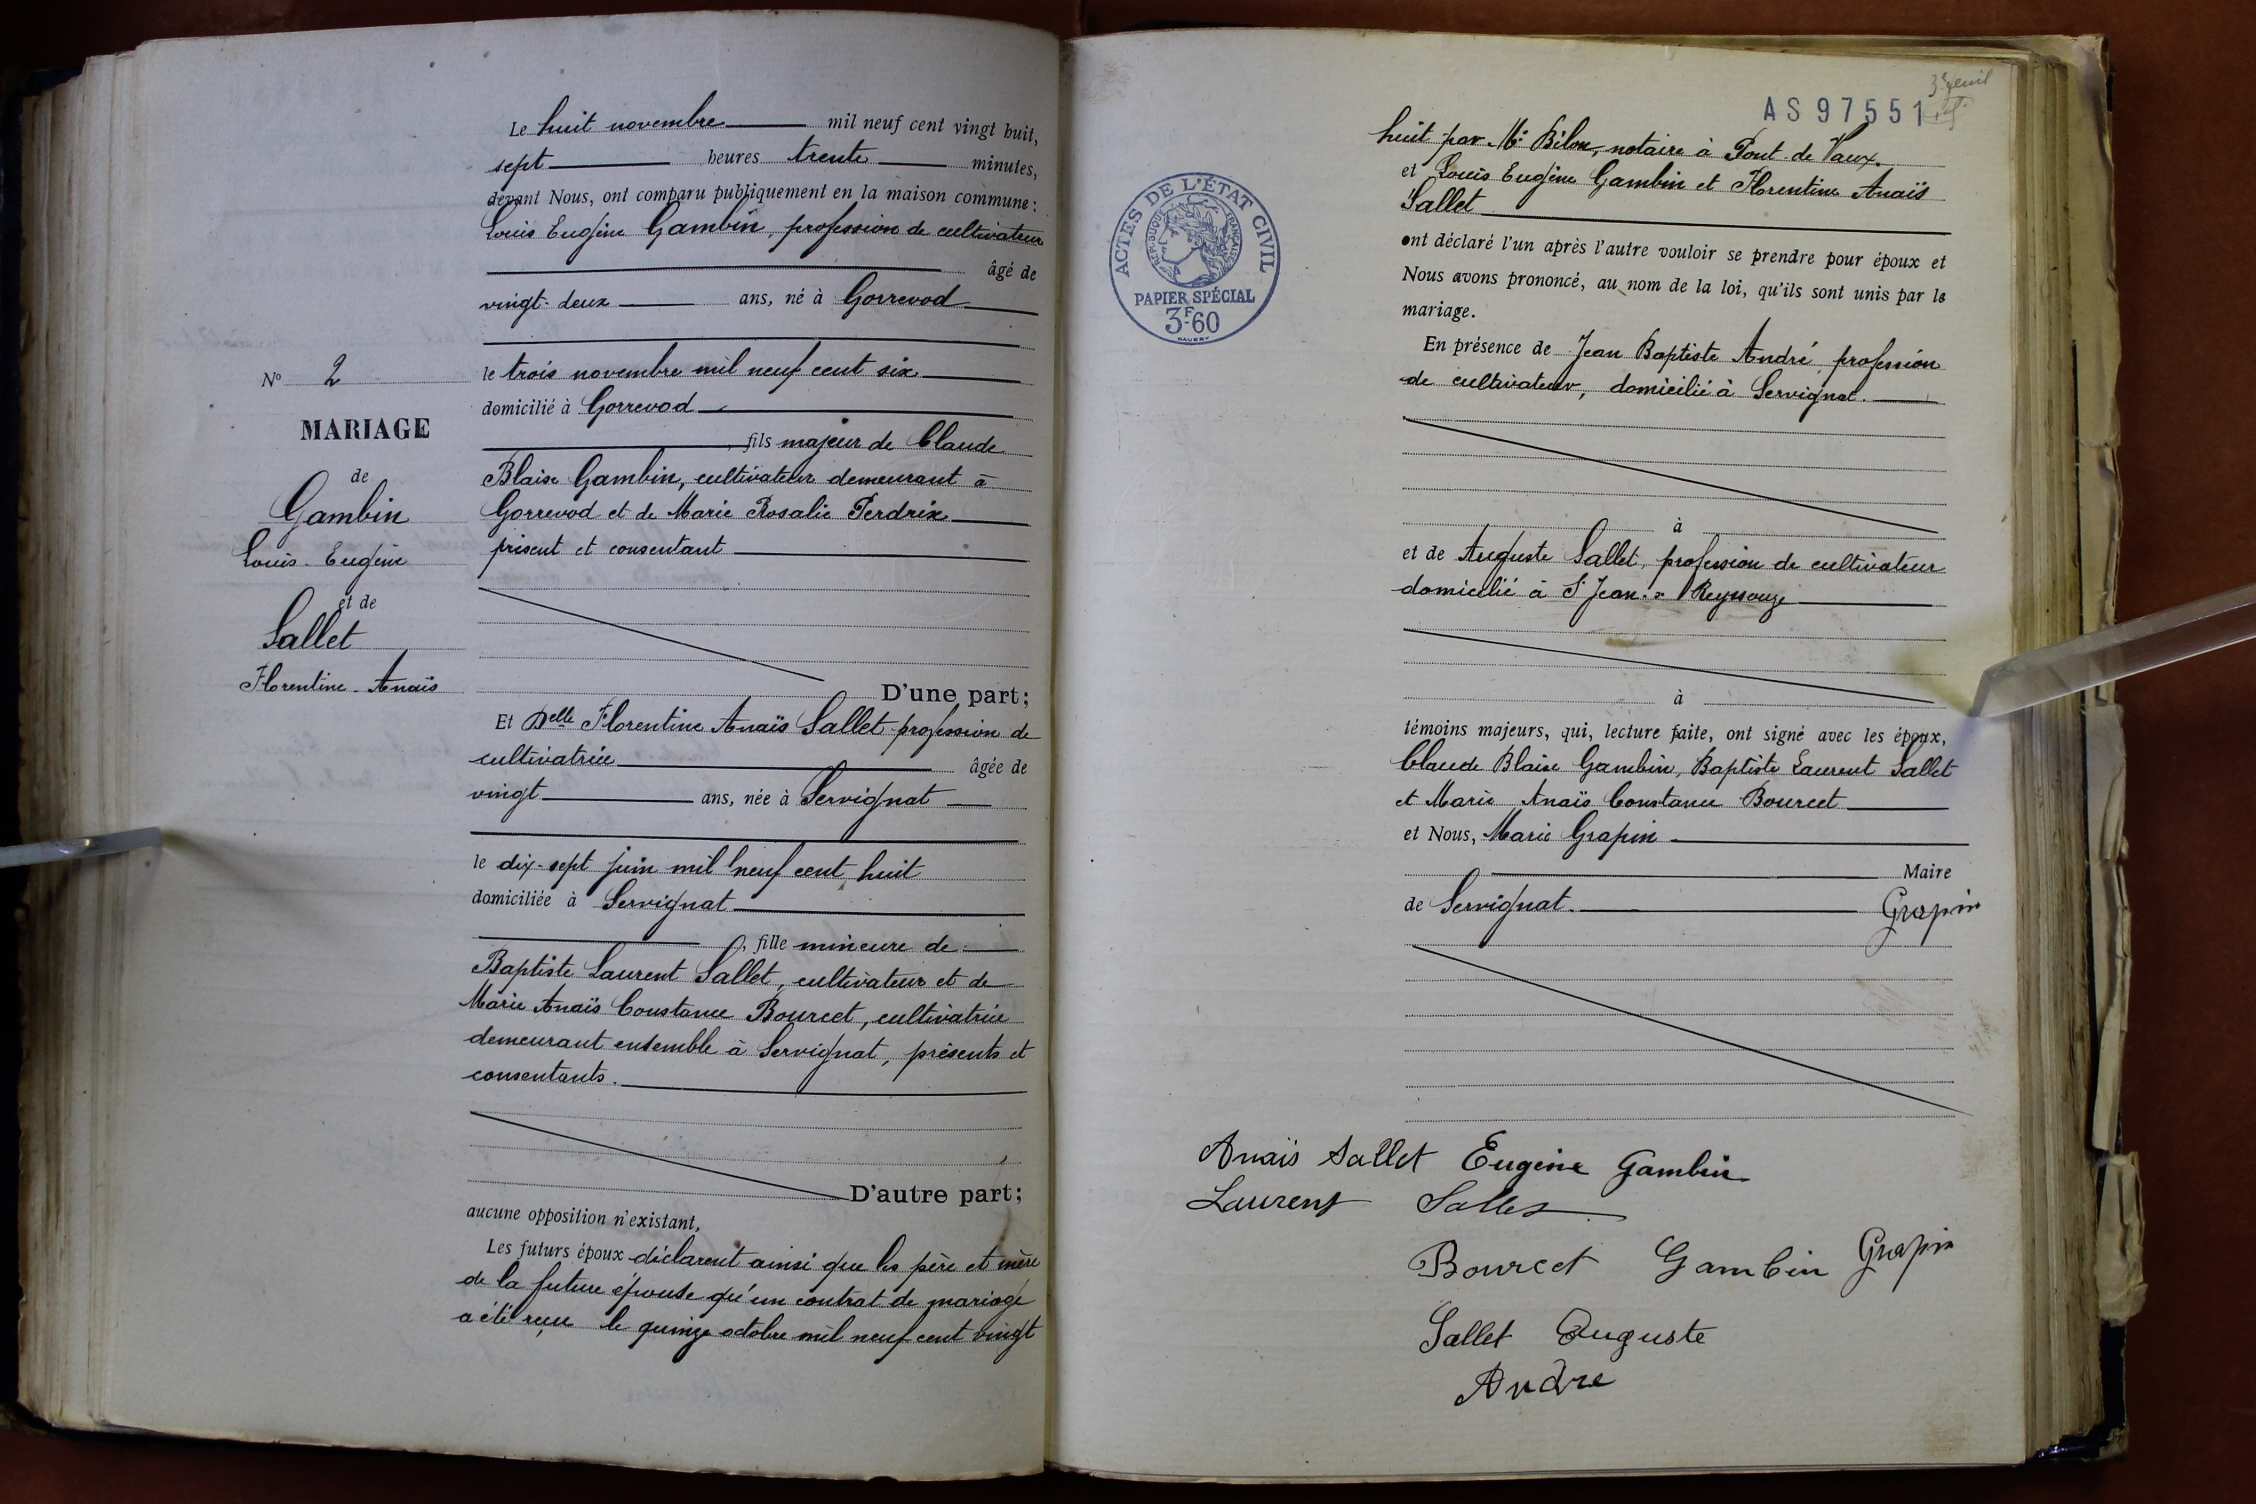 Le huit novembre mil neuf cent vingt huit,
sept heures trente minutes,
devant Nous, ont comparu publiquement en la maison commune :
Louis Eugène Gambin, profession de cultivateur
âgé de
vingt-deux ans, né à Gorrevod
le trois novembre mil neuf cent six
domicilié à Gorrevod
, fils majeur de Claude
Blaise Gambin, cultivateur demeurant à
Gorrevod et de Marie Rosalie Perdrix
présent et consentant
N° 2
MARIAGE
de
Gambin
Louis-Eugène
et de
Sallet
Florentine-Anaïs
D'une part;
Et Delle Florentine Anaïs Sallet profession de
cultivatrice âgée de
vingt ans, née à Servignat
le dix-sept juin mil neuf cent huit
domiciliée à Servignat
, fille mineure de
Baptiste Laurent Sallet, cultivateur et de
Marie Anaïs Constance Bourcet, cultivatrice
demeurant ensemble à Servignat, présents et
consentants.
D'autre part;
aucune opposition n'existant,
Les futurs époux déclarent ainsi que les père et mère
de la future épouse qu'un contrat de mariage
a été reçu le quinze octobre mil neuf cent vingt
AS 97551
huit par Me Bilon, notaire à Pont-de-Vaux.
et Louis Eugène Gambin et Florentine Anaïs
Sallet
ont déclaré l'un après l'autre vouloir se prendre pour époux et
Nous avons prononcé, au nom de la loi, qu'ils sont unis par le
mariage.
En présence de Jean Baptiste André profession
de cultivateur, domicilié à Servignat.
à
et de Auguste Sallet, profession de cultivateur
domicilié à St Jean s/ Reyssouze
à
témoins majeurs, qui, lecture faite, ont signé avec les époux,
Claude Blaise Gambin, Baptiste Laurent Sallet
et Marie Anaïs Constance Bourcet
et Nous, Marie Grapin
Maire
de Servignat. Grapin
ACTES DE L'ÉTAT CIVIL
RÉPUBLIQUE FRANÇAISE
PAPIER SPÉCIAL
3F60
Anaïs Sallet Eugène Gambin
Laurent Sallet
Bourcet Gambin Grapin
Sallet Auguste
André